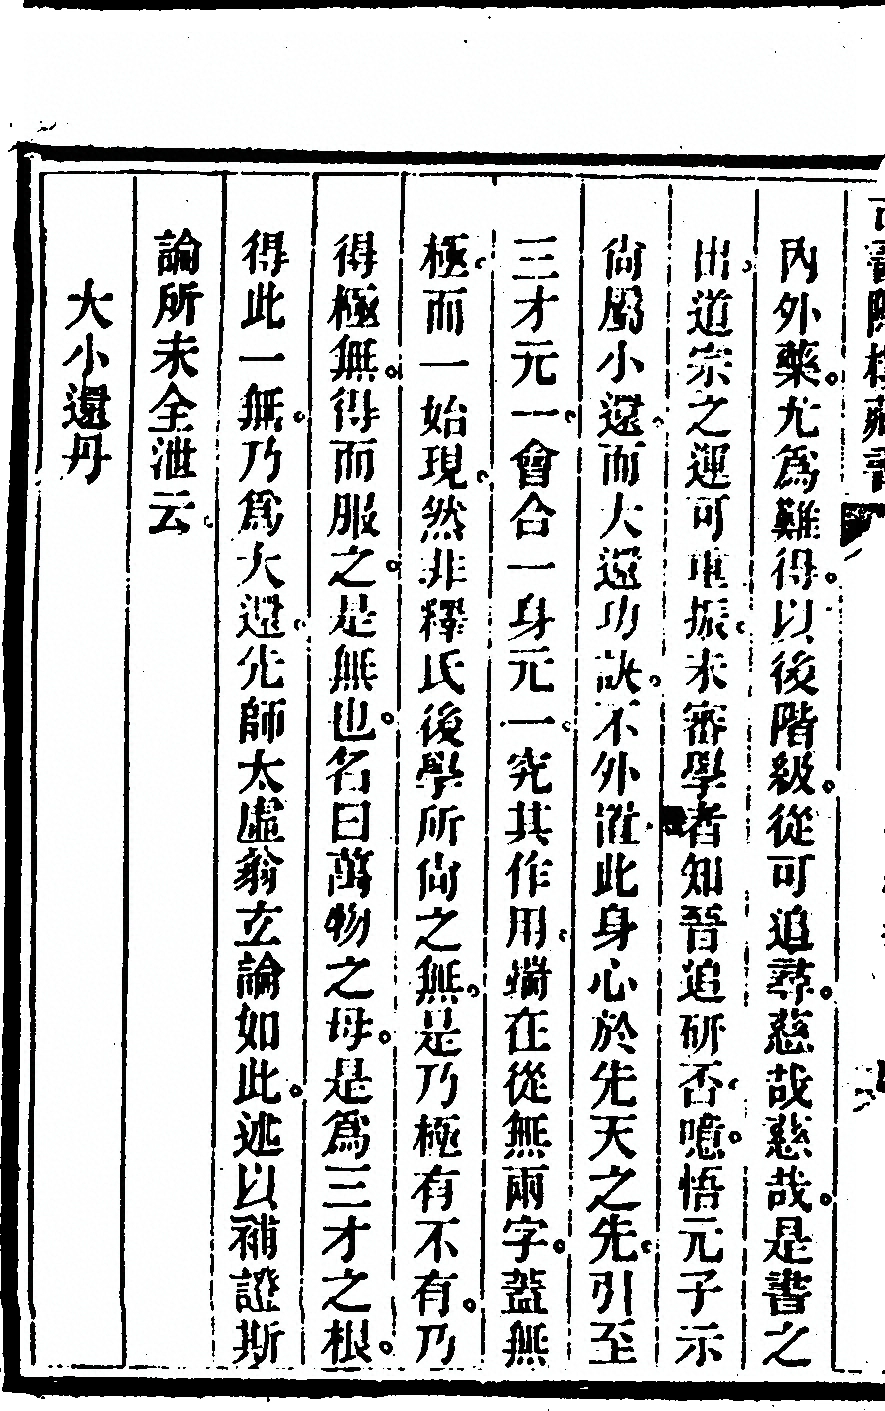 內外藥。尤爲難得。以後階級。從可追尋。慈哉慈哉。是書之
出。道宗之運可重振。未審學者知晉追研否。噫。悟元子示
尙屬小還。而大還功訣。不外置此身心於先天之先。引至
三才元一。會合一身元一。究其作用。端在從無兩字。蓋無
極。而一始現。然非釋氏後學所尙之無。是乃極有不有。乃
得極無。得而服之。是無也。名曰萬物之母。是爲三才之根。
得此一無。乃爲大還。先師太虛翁立論如此。述以補證斯
論所未全泄云。
大小還丹